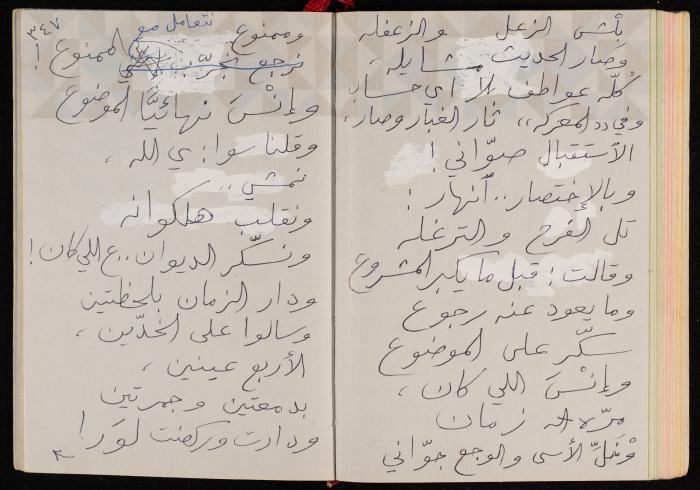 بلّش الزعل والزعفله
وصار الحديث مشايله،
كلّه عواطف بلا اي حساب
وفي ,, المعركه ,, ثار الغبار وصار،
الاستقبال صوّاني!
وبالاختصار.. انهار:
تل الفرح والترغله
وقالت: قبل ما يكبر المشروع
وما يعود عنه رجوع
سكّر على الموضوع
وإنْسَ اللي كان،
مرّه زمان
وْخلِّ الأسى والوجع جوّاني
٣٤٧
نتعامل مع
وممنوع
نرجع نجرّب الممنوع!
وإنْسَ نهائيًّا الموضوع
وقلنا سوا: ي الله،
نمشي..
ونقلب هلكوانه
ونسكّر الديوان.. ع اللي كان!
ودار الزمان بلحظتين
وسالوا على الخدّين،
الأربع عينين،
بدمعتين وجمرتين
ودارت وركضت لوَرا!